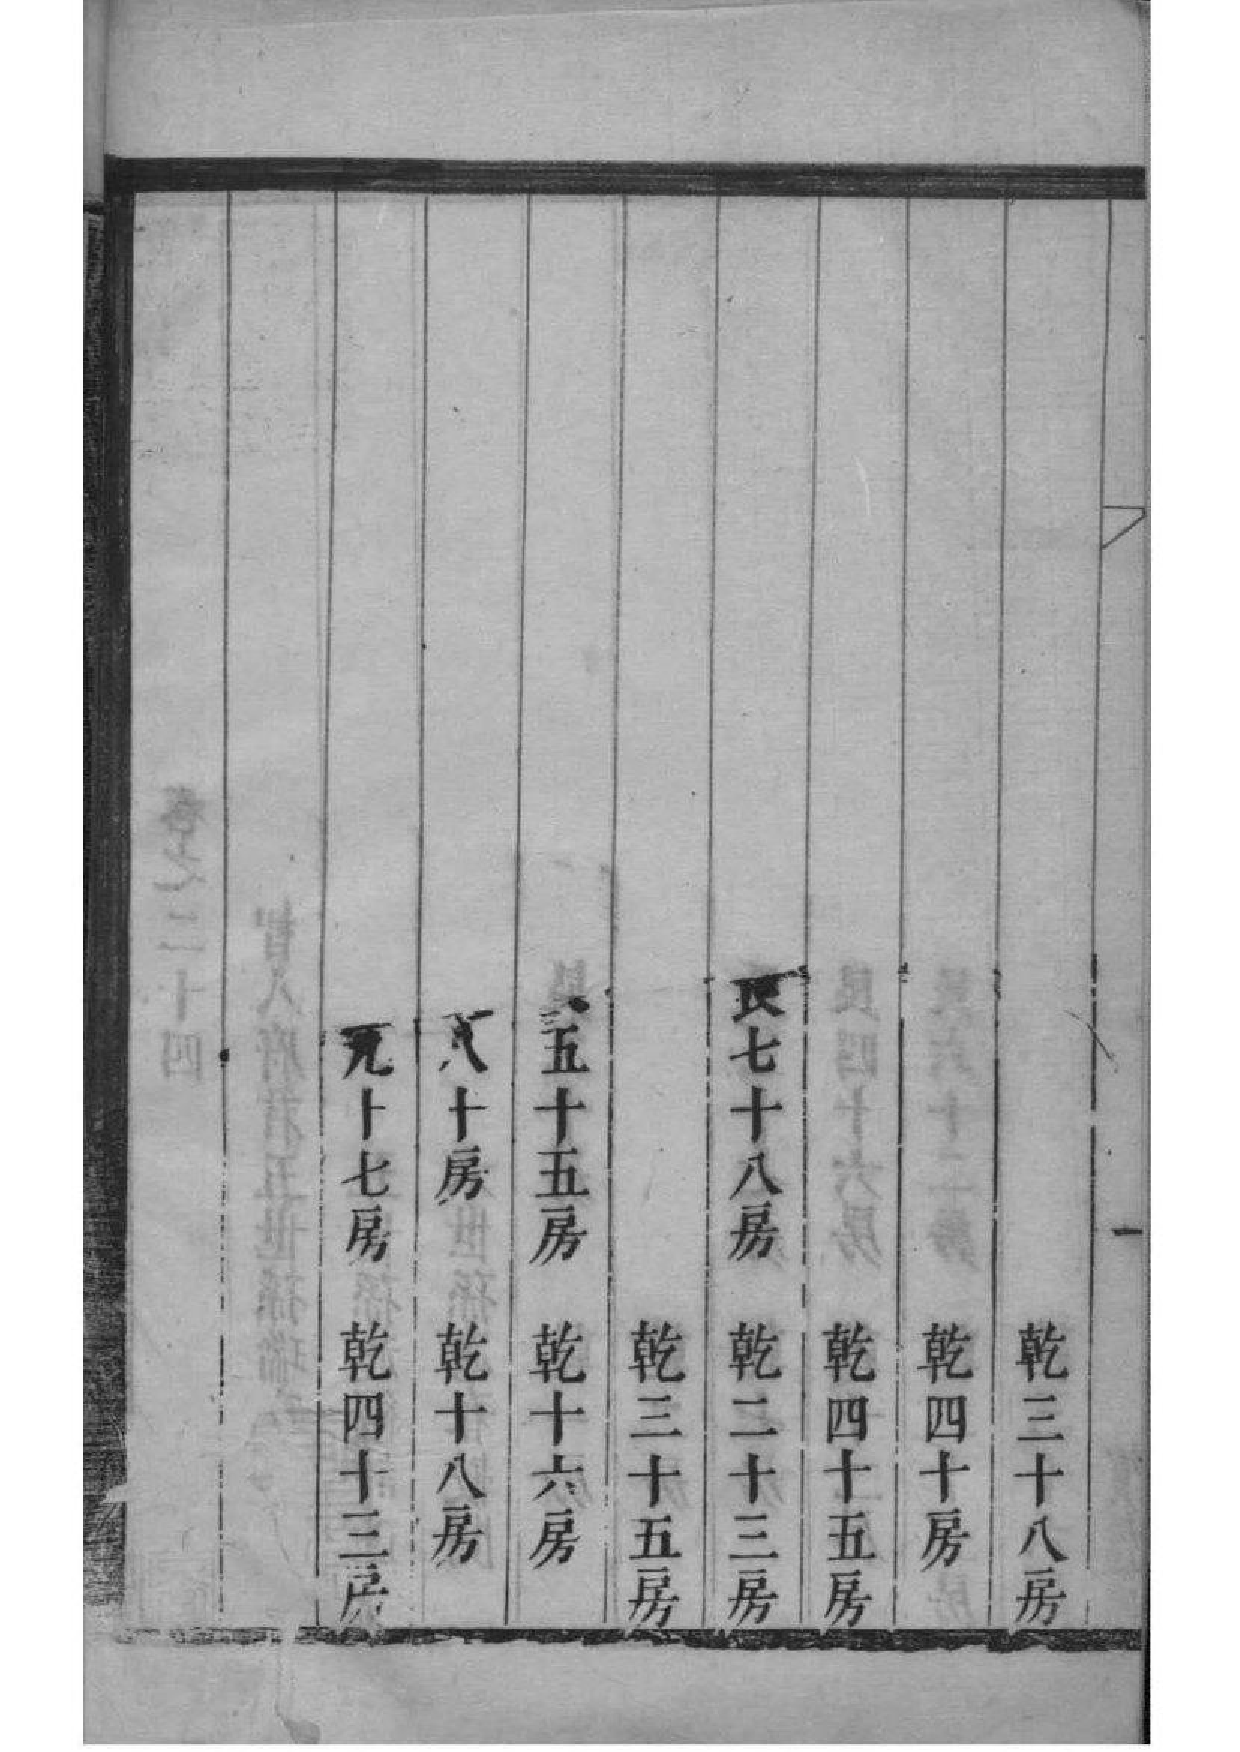 乾三十八房
乾四十房
乾四十五房
艮七十八房 乾二十三房
乾三十五房
五十五房 乾十六房
八十房 乾十八房
元十七房 乾四十三房
一